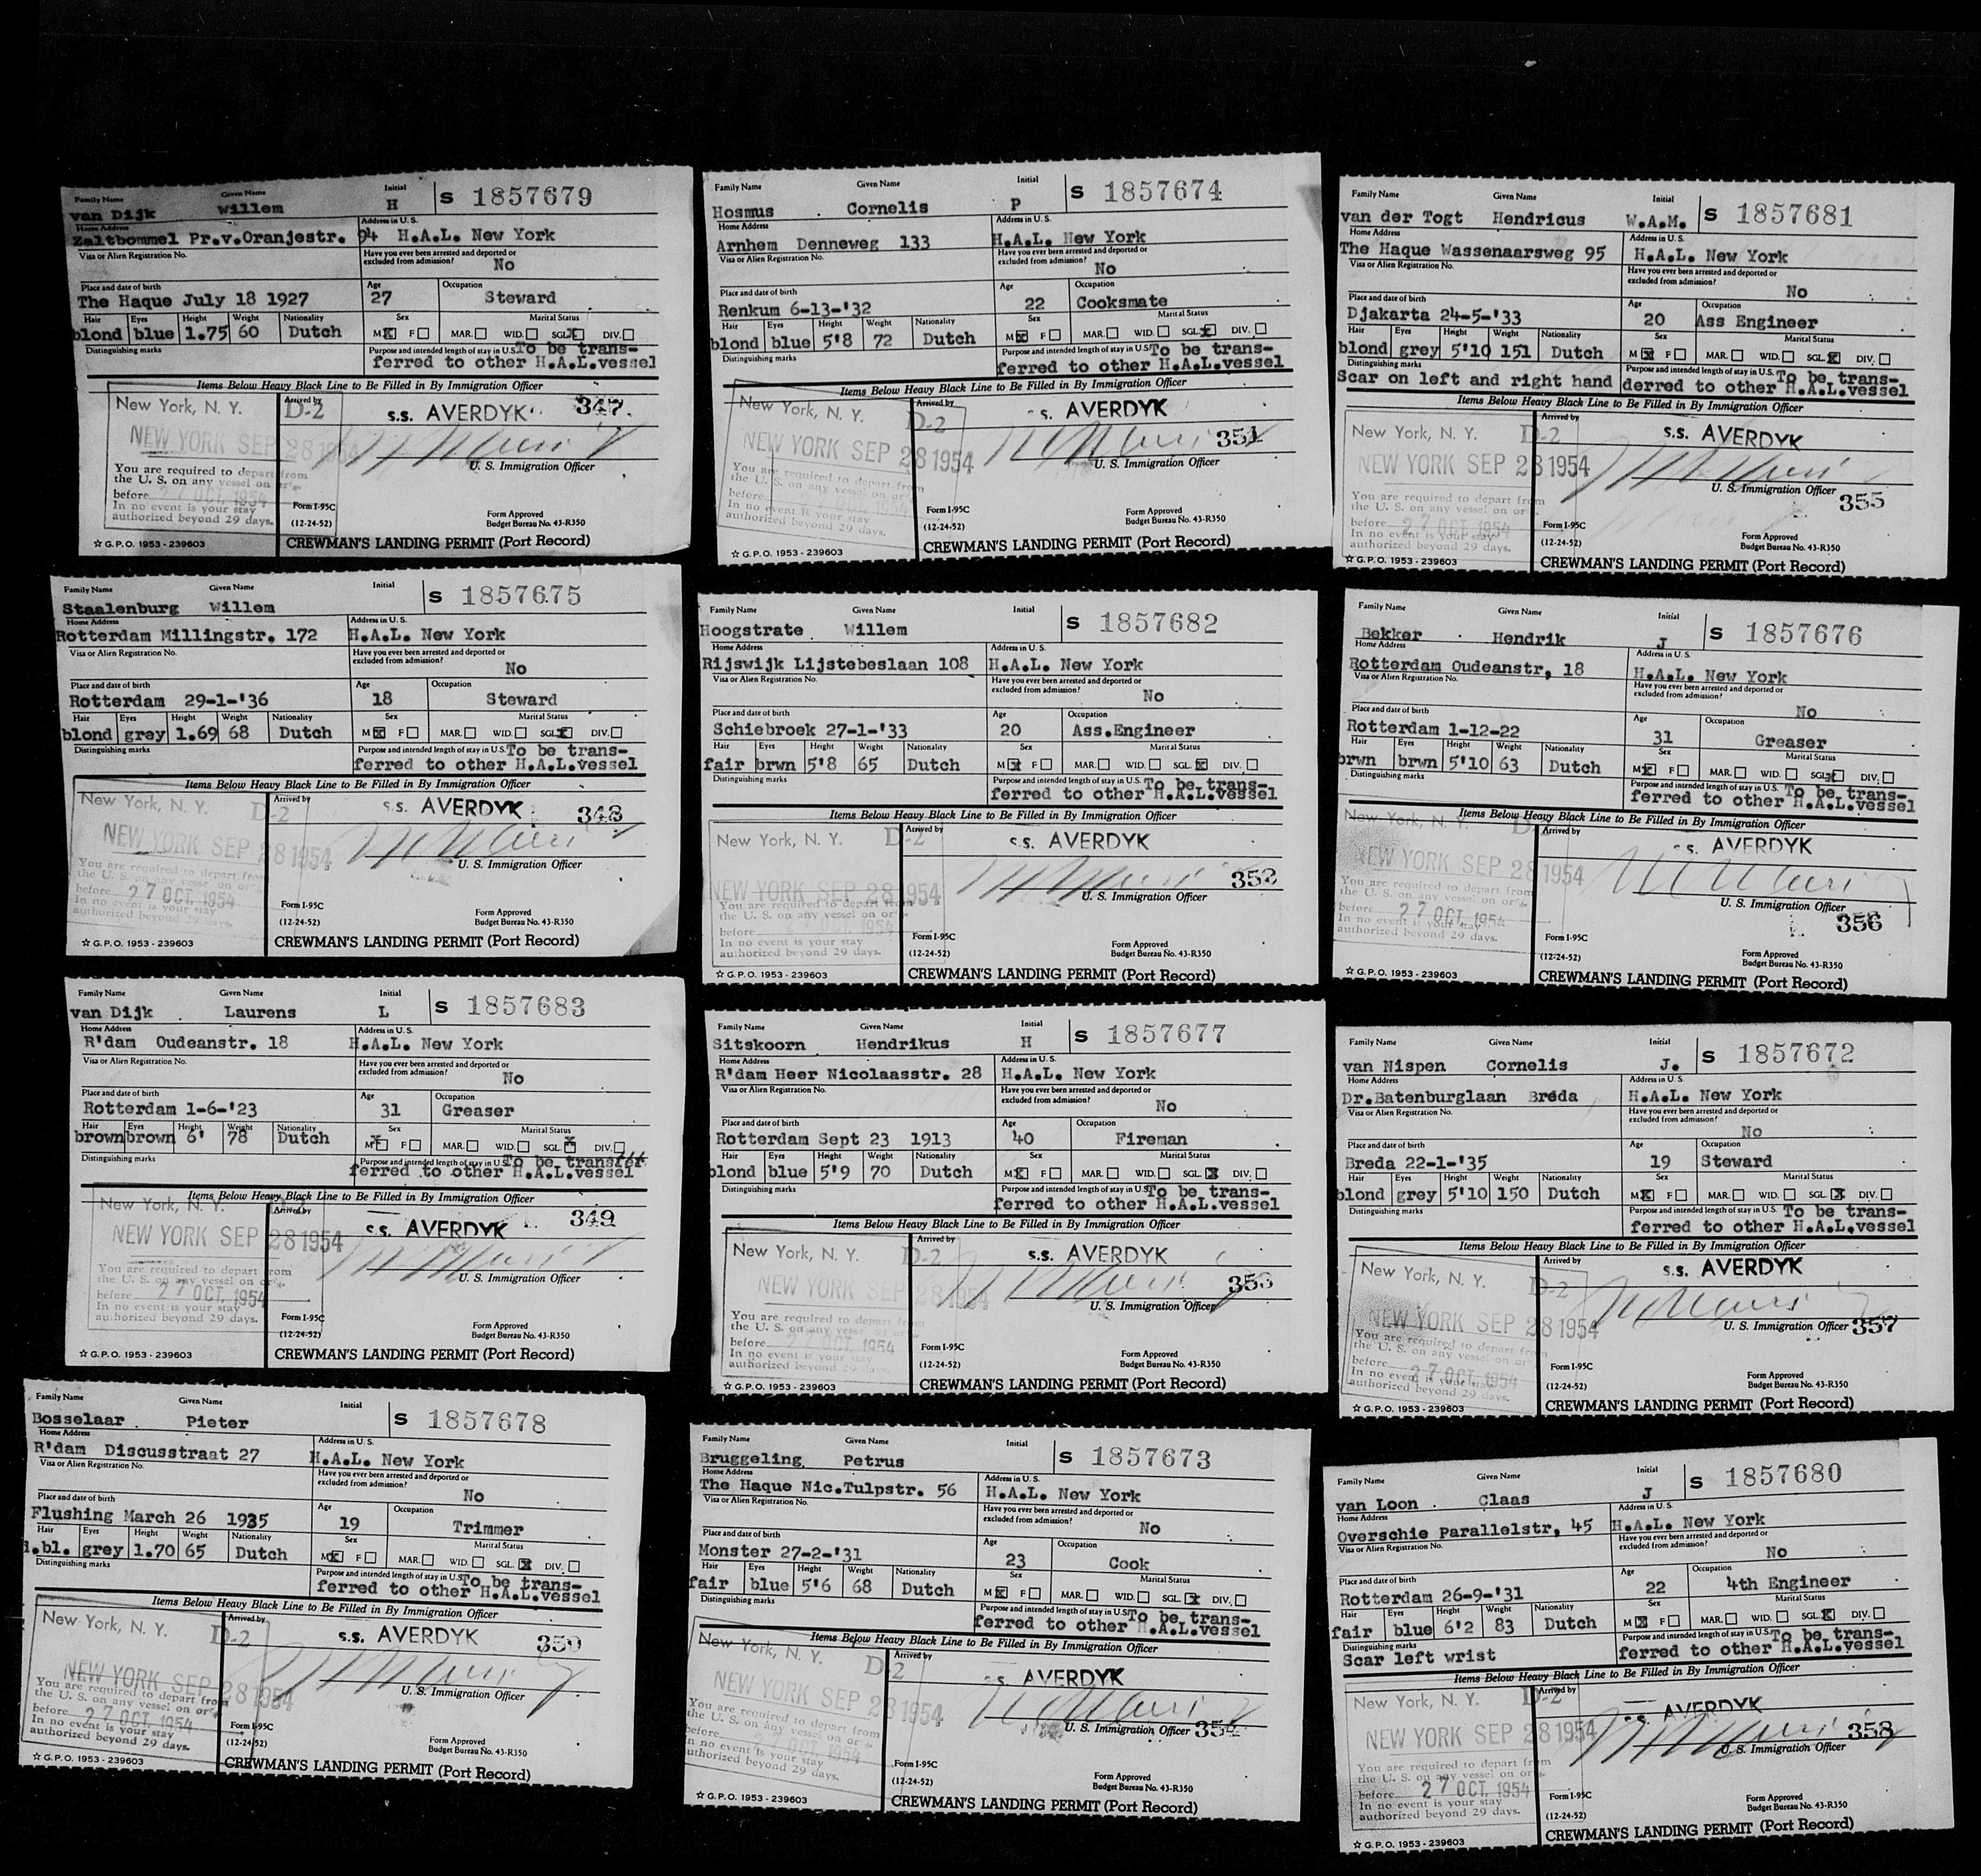 Family Name Given Name Initial
van Dijk Willem H S 1857679
Home Address Address in U.S.
Zaltbommel Pr.v.Oranjestr. 94 H.A.L. New York
Visa or Alien Registration No. Have you ever been arrested and deported or excluded from admission?
No
Place and date of birth Age Occupation
The Haque July 18 1927 27 Steward
Hair Eyes Height Weight Nationality Sex Marital Status
blond blue 1.75 60 Dutch M F MAR. WID. SGL. DIV.
Distinguishing marks Purpose and intended length of stay in U.S. To be trans-
ferred to other H.A.L.vessel
Items Below Heavy Black Line to Be Filled in By Immigration Officer
New York, N. Y. D-2 Arrived by s.s. AVERDYK 347
NEW YORK SEP 28 1954
U. S. Immigration Officer
You are required to depart from
the U. S. on any vessel on or
before 27 OCT. 1954
In no event is your stay
authorized beyond 29 days.
Form I-95C
(12-24-52)
Form Approved
Budget Bureau No. 43-R350
☆ G.P.O. 1953-239603 CREWMAN'S LANDING PERMIT (Port Record)
Family Name Given Name Initial
Staalenburg Willem S 1857675
Home Address Address in U.S.
Rotterdam Millingstr. 172 H.A.L. New York
Visa or Alien Registration No. Have you ever been arrested and deported or excluded from admission?
No
Place and date of birth Age Occupation
Rotterdam 29-1-'36 18 Steward
Hair Eyes Height Weight Nationality Sex Marital Status
blond grey 1.69 68 Dutch M F MAR. WID. SGL. DIV.
Distinguishing marks Purpose and intended length of stay in U.S. To be trans-
ferred to other H.A.L.vessel
Items Below Heavy Black Line to Be Filled in By Immigration Officer
New York, N. Y. D-2 Arrived by s.s. AVERDYK 348
NEW YORK SEP 28 1954
U. S. Immigration Officer
You are required to depart from
the U. S. on any vessel on or
before 27 OCT. 1954
In no event is your stay
authorized beyond 29 days.
Form I-95C
(12-24-52)
Form Approved
Budget Bureau No. 43-R350
☆ G.P.O. 1953-239603 CREWMAN'S LANDING PERMIT (Port Record)
Family Name Given Name Initial
van Dijk Laurens L S 1857683
Home Address Address in U.S.
R'dam Oudeanstr. 18 H.A.L. New York
Visa or Alien Registration No. Have you ever been arrested and deported or excluded from admission?
No
Place and date of birth Age Occupation
Rotterdam 1-6-'23 31 Greaser
Hair Eyes Height Weight Nationality Sex Marital Status
brown brown 6' 78 Dutch M F MAR. WID. SGL. DIV.
Distinguishing marks Purpose and intended length of stay in U.S. To be transfer
ferred to other H.A.L.vessel
Items Below Heavy Black Line to Be Filled in By Immigration Officer
New York, N. Y. D-2 Arrived by s.s. AVERDYK 349
NEW YORK SEP 28 1954
U. S. Immigration Officer
You are required to depart from
the U. S. on any vessel on or
before 27 OCT. 1954
In no event is your stay
authorized beyond 29 days.
Form I-95C
(12-24-52)
Form Approved
Budget Bureau No. 43-R350
☆ G.P.O. 1953-239603 CREWMAN'S LANDING PERMIT (Port Record)
Family Name Given Name Initial
Bosselaar Pieter S 1857678
Home Address Address in U.S.
R'dam Discusstraat 27 H.A.L. New York
Visa or Alien Registration No. Have you ever been arrested and deported or excluded from admission?
No
Place and date of birth Age Occupation
Flushing March 26 1935 19 Trimmer
Hair Eyes Height Weight Nationality Sex Marital Status
.bl. grey 1.70 65 Dutch M F MAR. WID. SGL. DIV.
Distinguishing marks Purpose and intended length of stay in U.S. To be trans-
ferred to other H.A.L.vessel
Items Below Heavy Black Line to Be Filled in By Immigration Officer
New York, N. Y. D-2 Arrived by s.s. AVERDYK 350
NEW YORK SEP 28 1954
U. S. Immigration Officer
You are required to depart from
the U. S. on any vessel on or
before 27 OCT. 1954
In no event is your stay
authorized beyond 29 days.
Form I-95C
(12-24-52)
Form Approved
Budget Bureau No. 43-R350
☆ G.P.O. 1953-239603 CREWMAN'S LANDING PERMIT (Port Record)
Family Name Given Name Initial
Hosmus Cornelis P S 1857674
Home Address Address in U.S.
Arnhem Denneweg 133 H.A.L. New York
Visa or Alien Registration No. Have you ever been arrested and deported or excluded from admission?
No
Place and date of birth Age Occupation
Renkum 6-13-'32 22 Cooksmate
Hair Eyes Height Weight Nationality Sex Marital Status
blond blue 5'8 72 Dutch M F MAR. WID. SGL. DIV.
Distinguishing marks Purpose and intended length of stay in U.S. To be trans-
ferred to other H.A.L.vessel
Items Below Heavy Black Line to Be Filled in By Immigration Officer
New York, N. Y. D-2 Arrived by s. AVERDYK
NEW YORK SEP 28 1954 351
U. S. Immigration Officer
You are required to depart from
the U. S. on any vessel on or
before
In no event is your stay
authorized beyond 29 days.
Form I-95C
(12-24-52)
Form Approved
Budget Bureau No. 43-R350
☆ G.P.O. 1953-239603 CREWMAN'S LANDING PERMIT (Port Record)
Family Name Given Name Initial
Hoogstrate Willem S 1857682
Home Address Address in U.S.
Rijswijk Lijstebeslaan 108 H.A.L. New York
Visa or Alien Registration No. Have you ever been arrested and deported or excluded from admission?
No
Place and date of birth Age Occupation
Schiebroek 27-1-'33 20 Ass.Engineer
Hair Eyes Height Weight Nationality Sex Marital Status
fair brwn 5'8 65 Dutch M F MAR. WID. SGL. DIV.
Distinguishing marks Purpose and intended length of stay in U.S. To be trans-
ferred to other H.A.L.vessel
Items Below Heavy Black Line to Be Filled in By Immigration Officer
New York, N. Y. D-2 Arrived by s.s. AVERDYK
NEW YORK SEP 28 1954 352
U. S. Immigration Officer
You are required to depart from
the U. S. on any vessel on or
before 27 OCT. 1954
In no event is your stay
authorized beyond 29 days.
Form I-95C
(12-24-52)
Form Approved
Budget Bureau No. 43-R350
☆ G.P.O. 1953-239603 CREWMAN'S LANDING PERMIT (Port Record)
Family Name Given Name Initial
Sitskoorn Hendrikus H S 1857677
Home Address Address in U.S.
R'dam Heer Nicolaasstr. 28 H.A.L. New York
Visa or Alien Registration No. Have you ever been arrested and deported or excluded from admission?
No
Place and date of birth Age Occupation
Rotterdam Sept 23 1913 40 Fireman
Hair Eyes Height Weight Nationality Sex Marital Status
blond blue 5'9 70 Dutch M F MAR. WID. SGL. DIV.
Distinguishing marks Purpose and intended length of stay in U.S. To be trans-
ferred to other H.A.L.vessel
Items Below Heavy Black Line to Be Filled in By Immigration Officer
New York, N. Y. D-2 Arrived by s.s. AVERDYK
NEW YORK SEP 28 1954 353
U. S. Immigration Officer
You are required to depart from
the U. S. on any vessel on or
before 27 OCT. 1954
In no event is your stay
authorized beyond 29 days.
Form I-95C
(12-24-52)
Form Approved
Budget Bureau No. 43-R350
☆ G.P.O. 1953-239603 CREWMAN'S LANDING PERMIT (Port Record)
Family Name Given Name Initial
Bruggeling Petrus S 1857673
Home Address Address in U.S.
The Haque Nic.Tulpstr. 56 H.A.L. New York
Visa or Alien Registration No. Have you ever been arrested and deported or excluded from admission?
No
Place and date of birth Age Occupation
Monster 27-2-'31 23 Cook
Hair Eyes Height Weight Nationality Sex Marital Status
fair blue 5'6 68 Dutch M F MAR. WID. SGL. DIV.
Distinguishing marks Purpose and intended length of stay in U.S. To be trans-
ferred to other H.A.L.vessel
Items Below Heavy Black Line to Be Filled in By Immigration Officer
New York, N. Y. D-2 Arrived by s. AVERDYK
NEW YORK SEP 28 1954
U. S. Immigration Officer 354
You are required to depart from
the U. S. on any vessel on or
before 27 OCT. 1954
In no event is your stay
authorized beyond 29 days.
Form I-95C
(12-24-52)
Form Approved
Budget Bureau No. 43-R350
☆ G.P.O. 1953-239603 CREWMAN'S LANDING PERMIT (Port Record)
Family Name Given Name Initial
van der Togt Hendricus W.A.M. S 1857681
Home Address Address in U.S.
The Haque Wassenaarsweg 95 H.A.L. New York
Visa or Alien Registration No. Have you ever been arrested and deported or excluded from admission?
No
Place and date of birth Age Occupation
Djakarta 24-5-'33 20 Ass Engineer
Hair Eyes Height Weight Nationality Sex Marital Status
blond grey 5'10 151 Dutch M F MAR. WID. SGL. DIV.
Distinguishing marks Purpose and intended length of stay in U.S. To be trans-
Scar on left and right hand derred to other H.A.L.vessel
Items Below Heavy Black Line to Be Filled in By Immigration Officer
New York, N. Y. D-2 Arrived by s.s. AVERDYK
NEW YORK SEP 28 1954
U. S. Immigration Officer 355
You are required to depart from
the U. S. on any vessel on or
before 27 OCT. 1954
In no event is your stay
authorized beyond 29 days.
Form I-95C
(12-24-52)
Form Approved
Budget Bureau No. 43-R350
☆ G.P.O. 1953-239603 CREWMAN'S LANDING PERMIT (Port Record)
Family Name Given Name Initial
Bekker Hendrik J S 1857676
Home Address Address in U.S.
Rotterdam Oudeanstr, 18 H.A.L. New York
Visa or Alien Registration No. Have you ever been arrested and deported or excluded from admission?
No
Place and date of birth Age Occupation
Rotterdam 1-12-22 31 Greaser
Hair Eyes Height Weight Nationality Sex Marital Status
brwn brwn 5'10 63 Dutch M F MAR. WID. SGL. DIV.
Distinguishing marks Purpose and intended length of stay in U.S. To be trans-
ferred to other H.A.L.vessel
Items Below Heavy Black Line to Be Filled in By Immigration Officer
New York, N. Y. Arrived by s. AVERDYK
NEW YORK SEP 28 1954
U. S. Immigration Officer
356
You are required to depart from
the U. S. on any vessel on or
before 27 OCT. 1954
In no event is your stay
authorized beyond 29 days.
Form I-95C
(12-24-52)
Form Approved
Budget Bureau No. 43-R350
☆ G.P.O. 1953-239603 CREWMAN'S LANDING PERMIT (Port Record)
Family Name Given Name Initial
van Nispen Cornelis J. S 1857672
Home Address Address in U.S.
Dr.Batenburglaan Breda H.A.L. New York
Visa or Alien Registration No. Have you ever been arrested and deported or excluded from admission?
No
Place and date of birth Age Occupation
Breda 22-1-'35 19 Steward
Hair Eyes Height Weight Nationality Sex Marital Status
blond grey 5'10 150 Dutch M F MAR. WID. SGL. DIV.
Distinguishing marks Purpose and intended length of stay in U.S. To be trans-
ferred to other H.A.L.vessel
Items Below Heavy Black Line to Be Filled in By Immigration Officer
New York, N. Y. D-2 Arrived by s.s. AVERDYK
NEW YORK SEP 28 1954
U. S. Immigration Officer 357
You are required to depart from
the U. S. on any vessel on or
before 27 OCT. 1954
In no event is your stay
authorized beyond 29 days.
Form I-95C
(12-24-52)
Form Approved
Budget Bureau No. 43-R350
☆ G.P.O. 1953-239603 CREWMAN'S LANDING PERMIT (Port Record)
Family Name Given Name Initial
van Loon Claas J S 1857680
Home Address Address in U.S.
Overschie Parallelstr, 45 H.A.L. New York
Visa or Alien Registration No. Have you ever been arrested and deported or excluded from admission?
No
Place and date of birth Age Occupation
Rotterdam 26-9-'31 22 4th Engineer
Hair Eyes Height Weight Nationality Sex Marital Status
fair blue 6'2 83 Dutch M F MAR. WID. SGL. DIV.
Distinguishing marks Purpose and intended length of stay in U.S. To be trans-
Scar left wrist ferred to other H.A.L.vessel
Items Below Heavy Black Line to Be Filled in By Immigration Officer
New York, N. Y. D-2 Arrived by AVERDYK
NEW YORK SEP 28 1954 358
U. S. Immigration Officer
You are required to depart from
the U. S. on any vessel on or
before 27 OCT. 1954
In no event is your stay
authorized beyond 29 days.
Form I-95C
(12-24-52)
Form Approved
Budget Bureau No. 43-R350
☆ G.P.O. 1953-239603 CREWMAN'S LANDING PERMIT (Port Record)